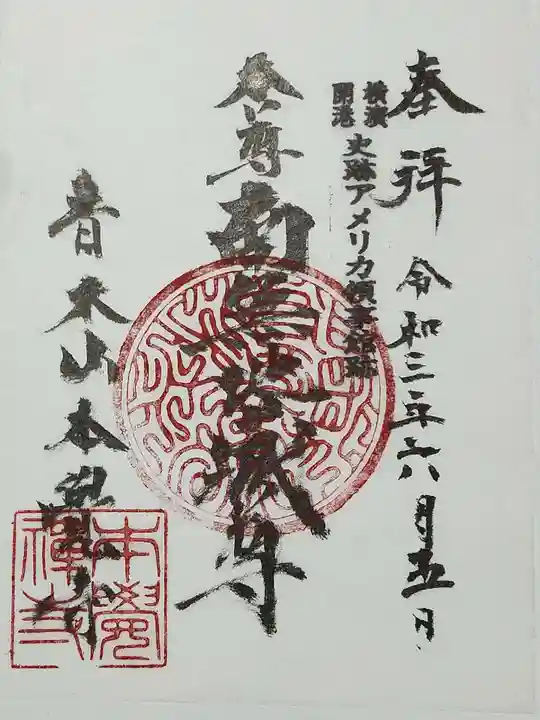 奉拝 令和三年六月五日
横濱
開港
史跡アメリカ領事館跡
本尊 南無地蔵尊
青木山本覺寺
本覺
禪寺